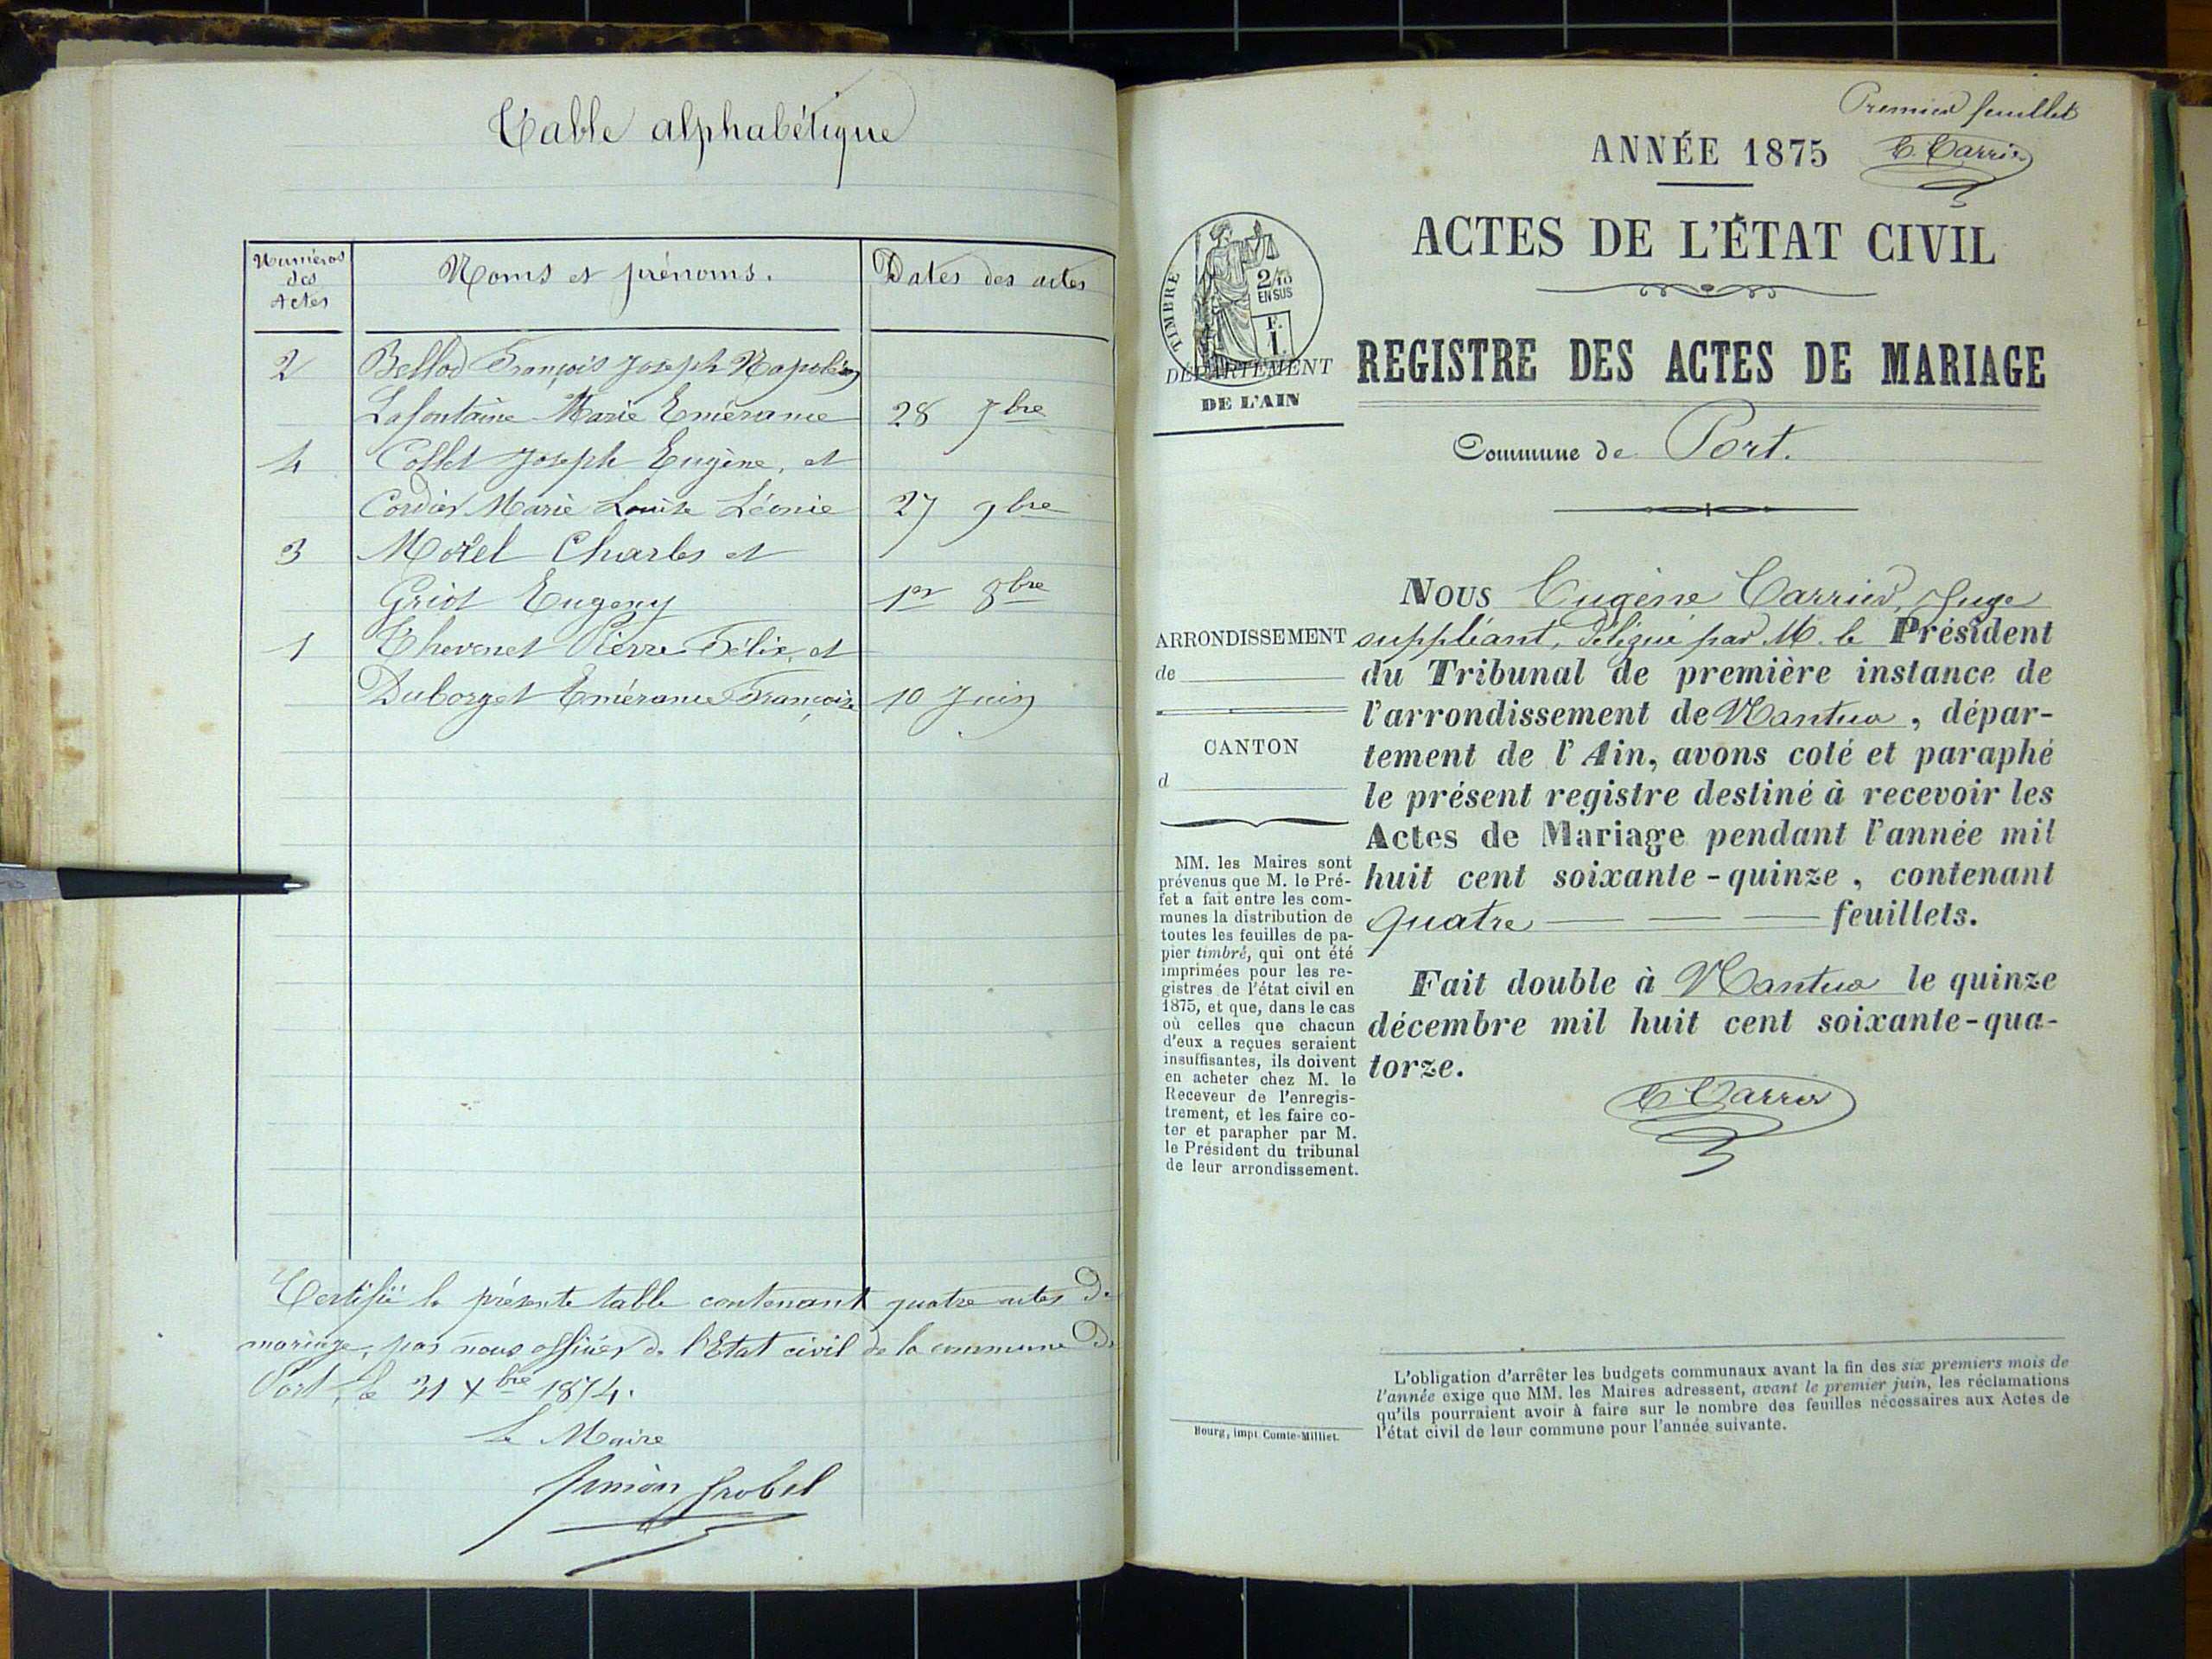 Table alphabétique
Numéros des Actes
Noms et prénoms.
Dates des actes
2 Bellod François Joseph Napoléon
Lafontaine Marie Emérance 28 7bre
4 Collet Joseph Eugène, et
Cordier Marie Louise Léonie 27 9bre
3 Motel Charles et
Griot Eugeny 1er 8bre
1 Thevenet Pierre Félix, et
Duborget Emérance Françoise 10 Juin
Certifié la présente table contenant quatre actes de
mariage, par nous officier de l'Etat civil de la commune de
Port, le 31 Xbre 1874.
Le Maire
Grobel
Premier feuillet
ANNÉE 1875
E. Carrier
ACTES DE L'ÉTAT CIVIL
TIMBRE
2/10
EN SUS
F.
1.
DÉPARTEMENT
DE L'AIN
REGISTRE DES ACTES DE MARIAGE
Commune de Port.
ARRONDISSEMENT
de
CANTON
d
MM. les Maires sont
prévenus que M. le Pré-
fet a fait entre les com-
munes la distribution de
toutes les feuilles de pa-
pier timbré, qui ont été
imprimées pour les re-
gistres de l'état civil en
1875, et que, dans le cas
où celles que chacun
d'eux a reçues seraient
insuffisantes, ils doivent
en acheter chez M. le
Receveur de l'enregis-
trement, et les faire co-
ter et parapher par M.
le Président du tribunal
de leur arrondissement.
Nous Eugène Carrier, Juge
suppléant, délégué par M. le Président
du Tribunal de première instance de
l'arrondissement de Nantua, dépar-
tement de l'Ain, avons coté et paraphé
le présent registre destiné à recevoir les
Actes de Mariage pendant l'année mil
huit cent soixante-quinze, contenant
quatre feuillets.
Fait double à Nantua le quinze
décembre mil huit cent soixante-qua-
torze.
E Carrier
L'obligation d'arrêter les budgets communaux avant la fin des six premiers mois de
l'année exige que MM. les Maires adressent, avant le premier juin, les réclamations
qu'ils pourraient avoir à faire sur le nombre des feuilles nécessaires aux Actes de
l'état civil de leur commune pour l'année suivante.
Bourg, impr. Comte-Milliet.